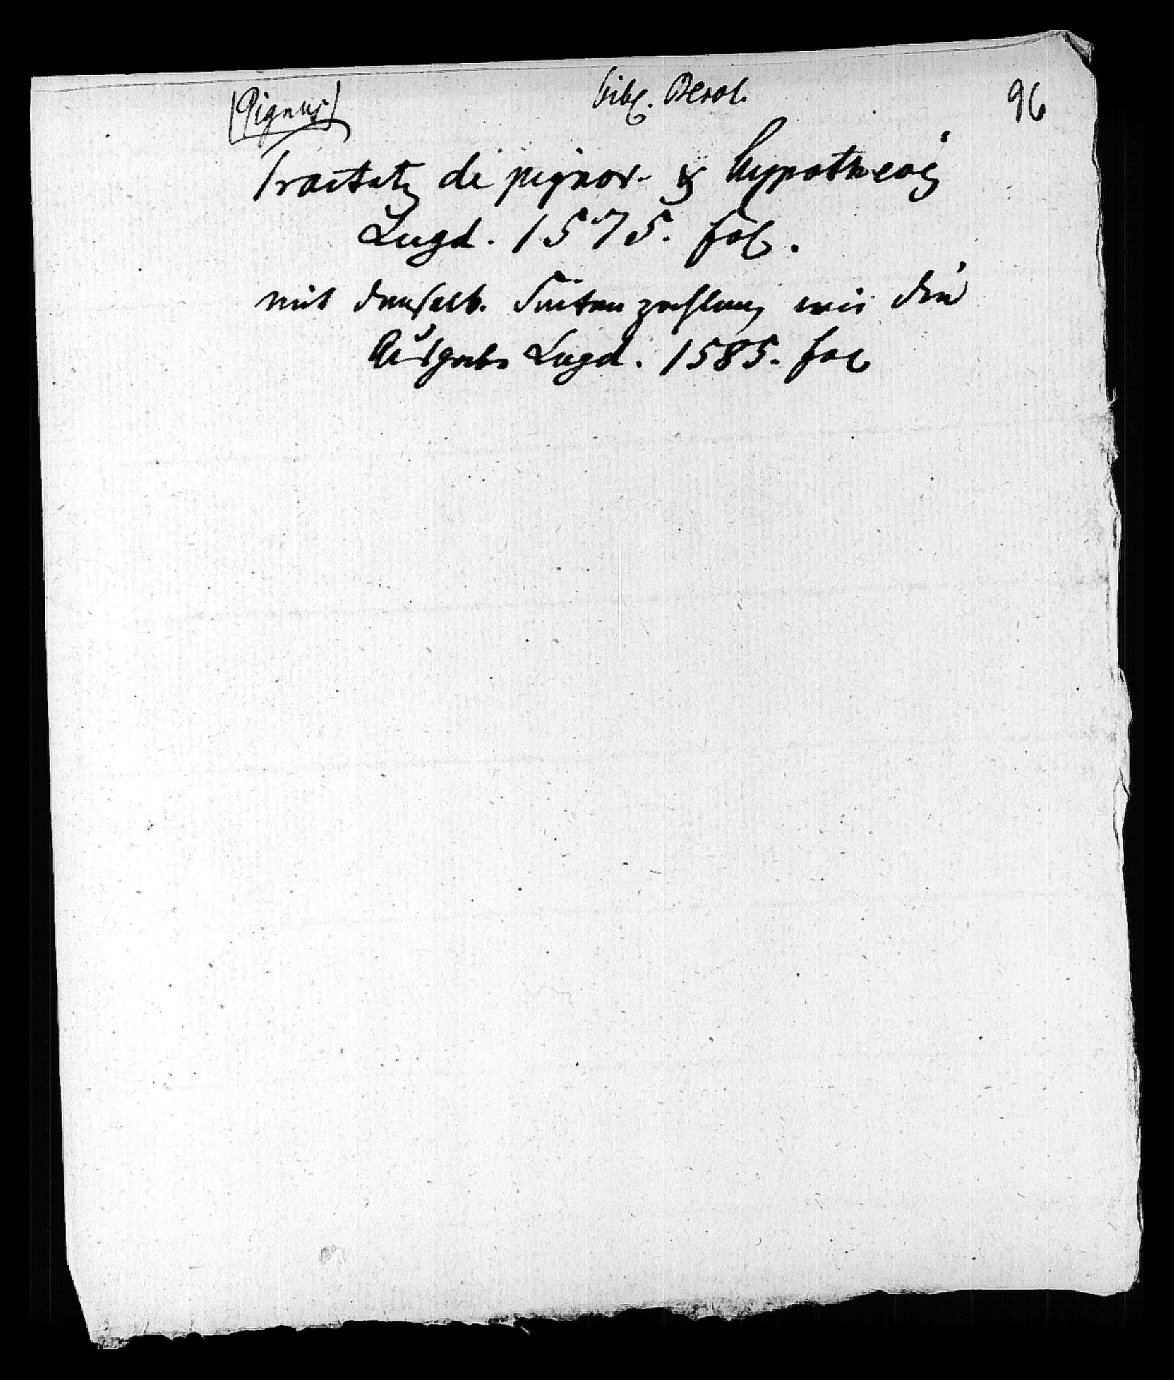 [Pignus] bibl. Berol. 96
Tractatus de pignor. & hypothecis
Lugd. 1575. fol.
mit denselb. Seitenzahlung wie die
Ausgabe Lugd. 1585. fol